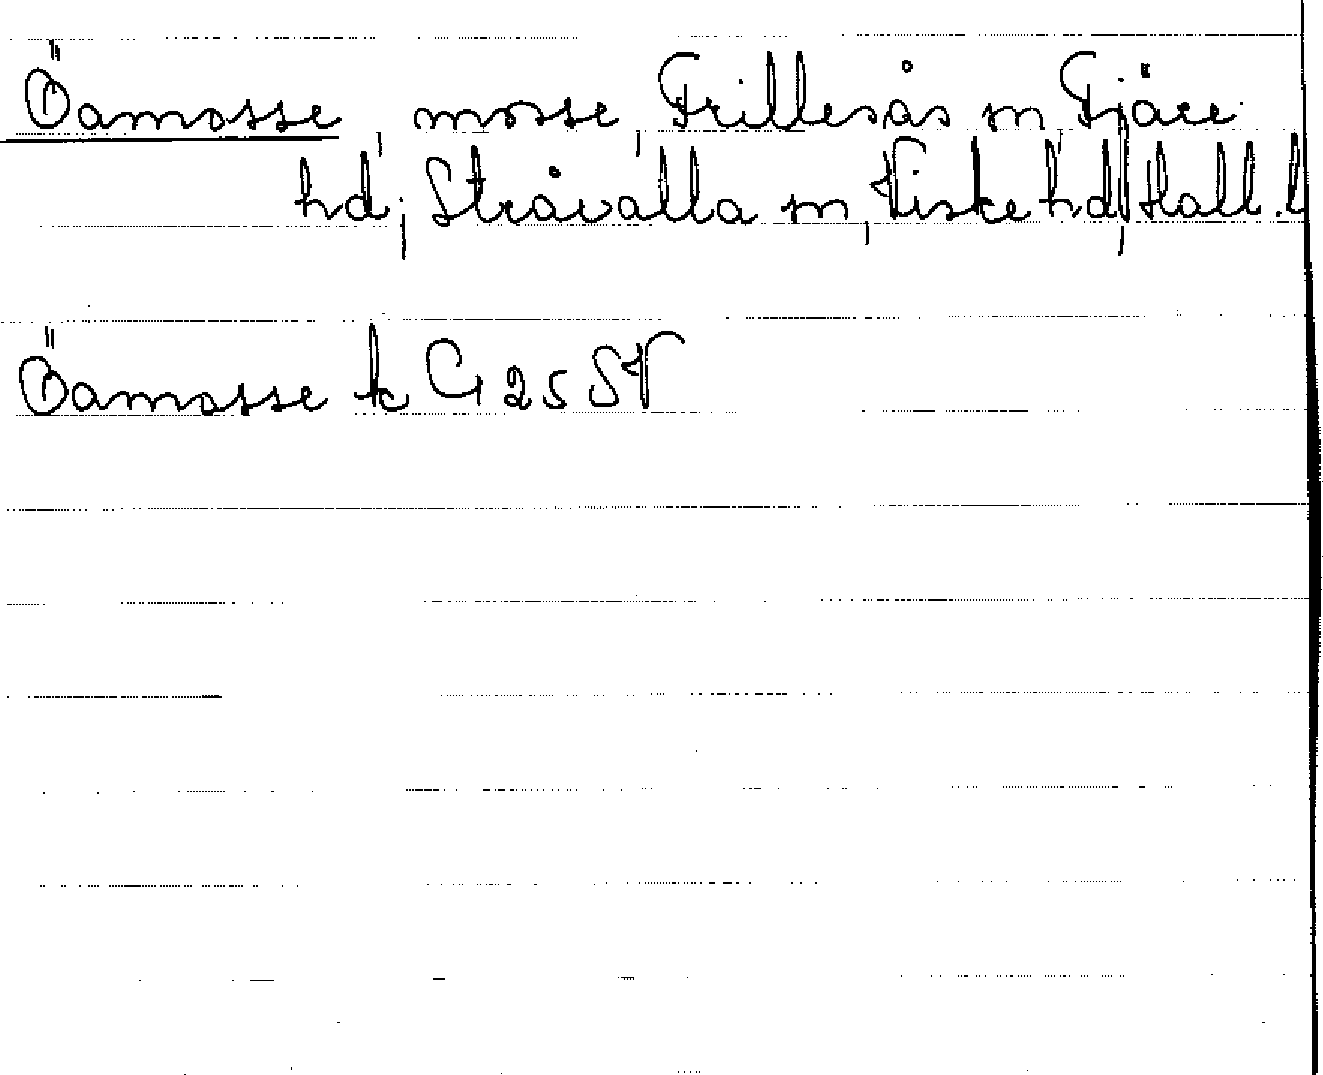 Öamosse, mosse, Frillesås sn, Fjäre
hd; Stråvalla sn, Viske hd, Hall. l
Öamosse k G 25 SV